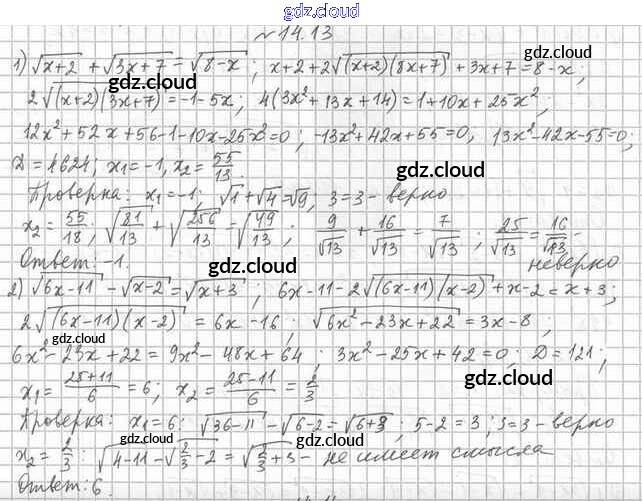 gdz.cloud
№14.13
gdz.cloud
1) √(x+2) + √(3x+7) = √(8-x) ; x+2+2√((x+2)(8x+7)) + 3x+7 = 8-x ;
gdz.cloud
2√((x+2)(3x+7)) = -1-5x ; 4(3x²+13x+14) = 1+10x+25x² ;
gdz.cloud
12x²+52x+56-1-10x-25x²=0 ; -13x²+42x+55=0, 13x²-42x-55=0;
D = 4624; x₁=-1, x₂= 55/13.
gdz.cloud
Проверка: x₁=-1; √1+√4=√9, 3=3 - верно
x₂ = 55/18; √(81/13) + √(256/13) = √(49/13) ; 9/√13 + 16/√13 = 7/√13 ; 25/√13 = 16/√13 -
gdz.cloud
Ответ: -1. неверно
gdz.cloud
2) √(6x-11) - √(x-2) = √(x+3) ; 6x-11-2√((6x-11)(x-2)) + x-2 = x+3 ;
gdz.cloud
2√((6x-11)(x-2)) = 6x-16 ; √(6x²-23x+22) = 3x-8 ;
6x²-23x+22 = 9x²-48x+64 ; 3x²-25x+42=0 ; D=121 ;
gdz.cloud
x₁ = (25+11)/6 = 6 ; x₂ = (25-11)/6 = 2/3
Проверка: x₁=6; √(36-11) - √(6-2) = √(6+3) ; 5-2=3 ; 3=3 - верно
gdz.cloud
gdz.cloud
x₂ = 2/3 : √(4-11) - √(2/3-2) = √(2/3+3) - не имеет смысла
Ответ: 6.
gdz.cloud